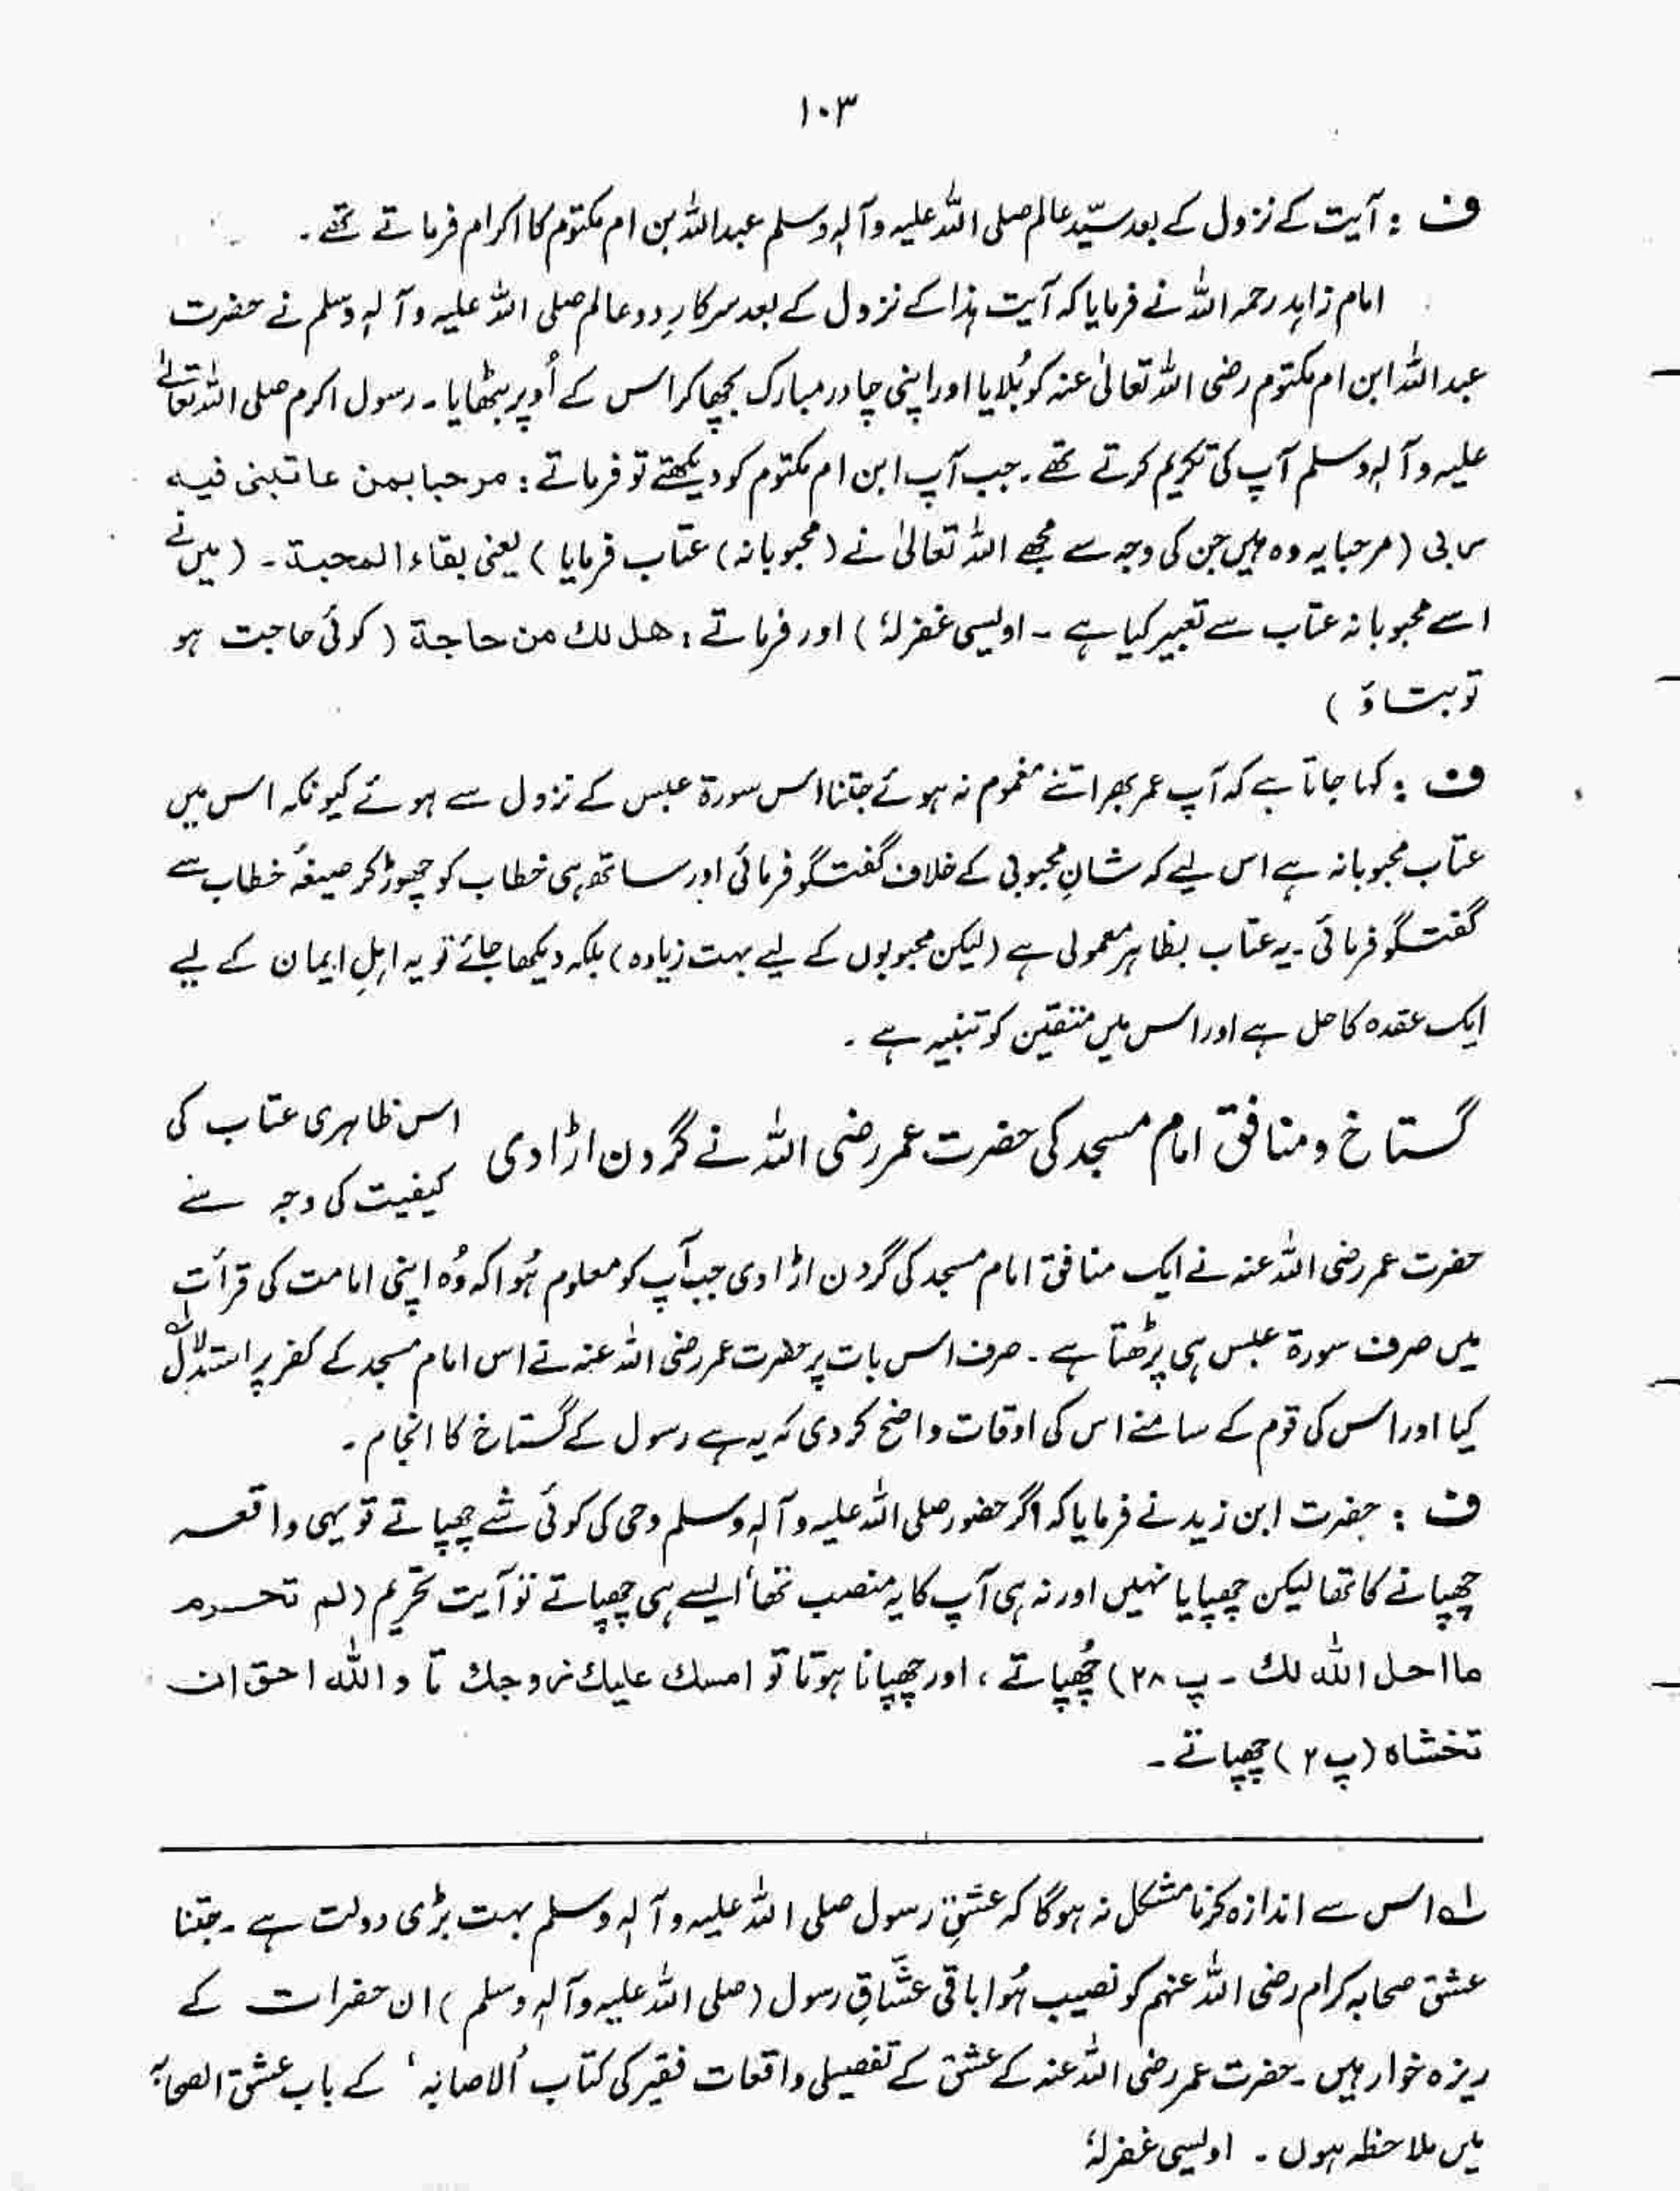 ۱۰۳
ف : آیت کے نزول کے بعد سیّدِ عالم صلی اللہ علیہ وآلہٖ وسلم عبداللہ بن ام مکتوم کا اکرام فرماتے تھے۔
امام زاہد رحمہ اللہ نے فرمایا کہ آیت ہذا کے نزول کے بعد سرکارِ دو عالم صلی اللہ علیہ وآلہٖ وسلم نے حضرت
عبداللہ ابن ام مکتوم رضی اللہ تعالیٰ عنہ کو بُلایا اور اپنی چادر مبارک بچھا کر اس کے اُوپر بٹھایا۔ رسول اکرم صلی اللہ تعالیٰ
علیہ وآلہٖ وسلم آپ کی تکریم کرتے تھے۔ جب آپ ابن ام مکتوم کو دیکھتے تو فرماتے : مرحبا بمن عاتبنی فیہ
ربی (مرحبا یہ وہ ہیں جن کی وجہ سے مجھے اللہ تعالیٰ نے (محبوبانہ) عتاب فرمایا) یعنی بقاء المحبة۔ (میں نے
اسے محبوبانہ عتاب سے تعبیر کیا ہے ۔ اویسی غفرلہٗ) اور فرماتے : هل لك من حاجة (کوئی حاجت ہو
تو بتاؤ)
ف : کہا جاتا ہے کہ آپ عمر بھر اتنے مغموم نہ ہوئے جتنا اس سورۃ عبس کے نزول سے ہوئے کیونکہ اس میں
عتاب محبوبانہ ہے اس لیے کہ شانِ محبوبی کے خلاف گفتگو فرمائی اور ساتھ ہی خطاب کو چھوڑ کر صیغۂ خطاب سے
گفتگو فرمائی۔ یہ عتاب بظاہر معمولی ہے (لیکن محبوبوں کے لیے بہت زیادہ) بلکہ دیکھا جائے تو یہ اہلِ ایمان کے لیے
ایک عقدہ کا حل ہے اور اس میں متقین کو تنبیہ ہے ۔
گستاخ و منافق امام مسجد کی حضرت عمر رضی اللہ نے گردن اڑا دی
اس ظاہری عتاب کی
کیفیت کی وجہ سے
حضرت عمر رضی اللہ عنہ نے ایک منافق امام مسجد کی گردن اڑا دی جب آپ کو معلوم ہُوا کہ وُہ اپنی امامت کی قرأت
میں صرف سورۃ عبس ہی پڑھتا ہے ۔ صرف اس بات پر حضرت عمر رضی اللہ عنہ نے اس امام مسجد کے کفر پر استدلال لہ
کیا اور اس کی قوم کے سامنے اس کی اوقات واضح کر دی کہ یہ ہے رسول کے گستاخ کا انجام ۔
ف : حضرت ابن زید نے فرمایا کہ اگر حضور صلی اللہ علیہ وآلہٖ وسلم وحی کی کوئی شے چھپاتے تو یہی واقعہ
چھپانے کا تھا لیکن چھپایا نہیں اور نہ ہی آپ کا یہ منصب تھا، ایسے ہی چھپاتے تو آیت تحریم (لم تحرم
ما احل اللہ لك ۔ پ ۲۸) چُھپاتے ، اور چھپانا ہوتا تو امسك علیك زوجك تا واللہ احق ان
تخشاہ (پ ۲) چھپاتے ۔
لہ اس سے اندازہ کرنا مشکل نہ ہوگا کہ عشقِ رسول صلی اللہ علیہ وآلہٖ وسلم بہت بڑی دولت ہے۔ جتنا
عشق صحابہ کرام رضی اللہ عنہم کو نصیب ہُوا باقی عشّاقِ رسول (صلی اللہ علیہ وآلہٖ وسلم) ان حضرات کے
ریزہ خوار ہیں ۔ حضرت عمر رضی اللہ عنہ کے عشق کے تفصیلی واقعات فقیر کی کتاب 'الاصابہ' کے باب عشق الصحابہ
میں ملاحظہ ہوں ۔ اویسی غفرلہٗ